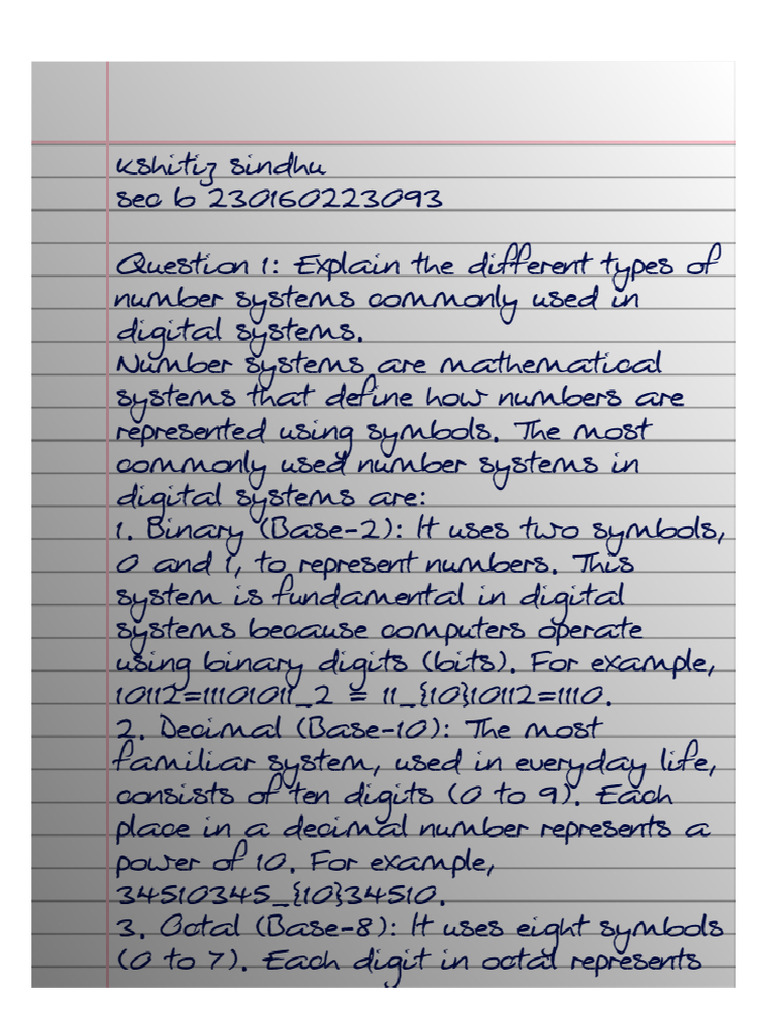 Kshitiz sindhu
sec b 230160223093
Question 1: Explain the different types of
number systems commonly used in
digital systems.
Number systems are mathematical
systems that define how numbers are
represented using symbols. The most
commonly used number systems in
digital systems are:
1. Binary (Base-2): It uses two symbols,
0 and 1, to represent numbers. This
system is fundamental in digital
systems because computers operate
using binary digits (bits). For example,
10112=11101011_2 = 11_{10}10112=1110.
2. Decimal (Base-10): The most
familiar system, used in everyday life,
consists of ten digits (0 to 9). Each
place in a decimal number represents a
power of 10. For example,
34510345_{10}34510.
3. Octal (Base-8): It uses eight symbols
(0 to 7). Each digit in octal represents